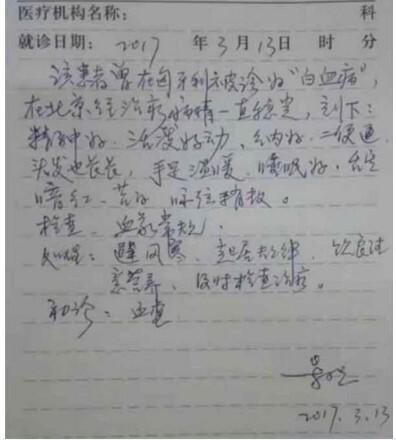 医疗机构名称： 科
就诊日期： 2017 年 3 月 13 日 时 分
该患者曾在匈牙利被诊为"白血病"，
在北京经治疗病情一直稳定，刻下：
精神好、活泼好动、纳好、二便通
头发也长长，手足温暖、睡眠好，舌
暗红、苔白、脉弦稍数。
检查：血尿常规
处理：避风寒、起居规律、饮食
营养、及时检查治疗。
初诊：
2017.3.13